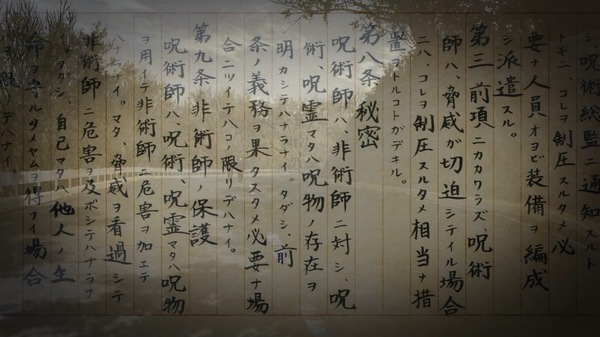 シ、呪術総監ニ通知スルト
トモニ、コレヲ制圧スルタメ必
要ナ人員オヨビ装備ヲ編成
シ派遣スル。
第三 前項ニカカワラズ、呪術
師ハ、脅威ガ切迫シテイル場合
ニハ、コレヲ制圧スルタメ相当ナ措
置ヲトルコトガデキル。
第八条 秘密
呪術師ハ、非術師ニ対シ、呪
術、呪霊マタハ呪物ノ存在ヲ
明カシテハナラナイ。タダシ、前
条ノ義務ヲ果タスタメ必要ナ場
合ニツイテハコノ限リデハナイ。
第九条 非術師ノ保護
呪術師ハ、呪術、呪霊マタハ呪物
ヲ用イテ非術師ニ危害ヲ加エテ
ハナラナイ。マタ、脅威ヲ看過シテ
非術師ニ危害ヲ及ボシテハナラナ
。タダシ、自己マタハ他人ノ生
命ヲ守ルタメヤムヲ得ナイ場合
デハナイ。